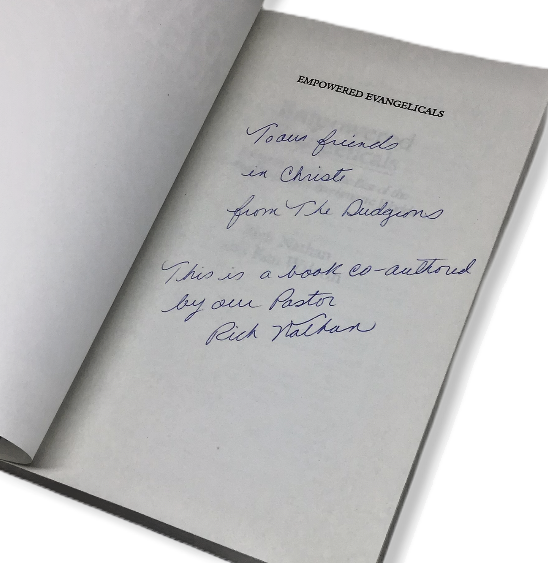 EMPOWERED EVANGELICALS
To our friends
in Christ
from The Dudgions
This is a book co-authored
by our Pastor
Rich Nathan